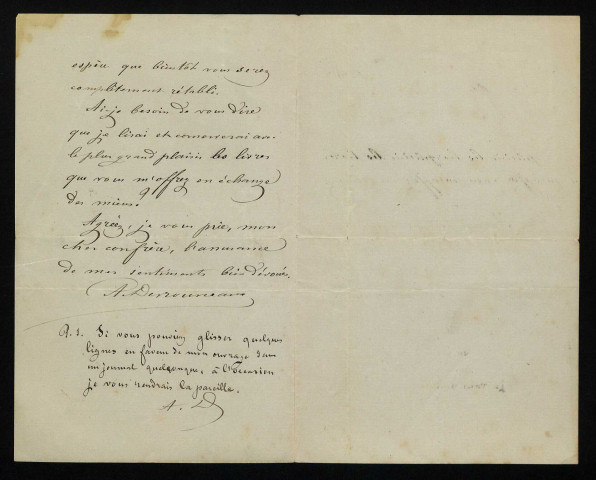 espère que bientôt vous serez
complètement rétabli.
Ai-je besoin de vous dire
que je lirai et conserverai avec
le plus grand plaisir les livres
que vous m'offrez en échange
des miens?
Agréez, je vous prie, mon
cher confrère, l'assurance
de mes sentiments bien dévoués.
A. Desrousseaux
P. S. Si vous pouviez glisser quelques
lignes en faveur de mon ouvrage dans
un journal quelconque, à l'occasion
je vous rendrais la pareille.
A. D